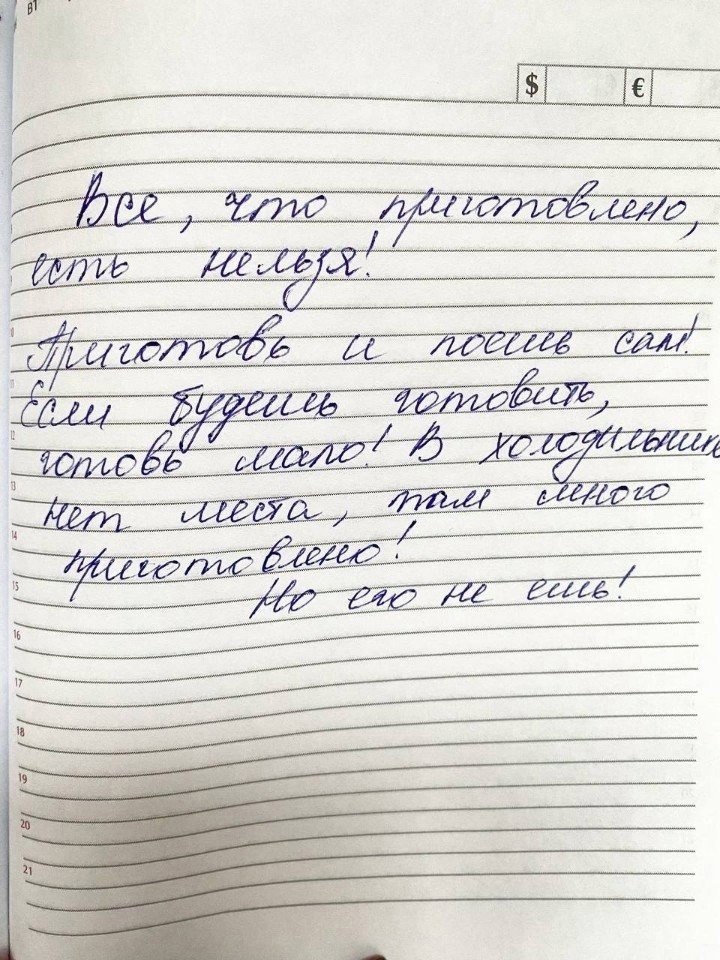 B1
$ €
Все, что приготовлено,
есть нельзя!
Приготовь и поешь сам!
Если будешь готовить,
готовь мало! В холодильнике
нет места, там много
приготовлено!
Но его не ешь!
16
17
18
19
20
21